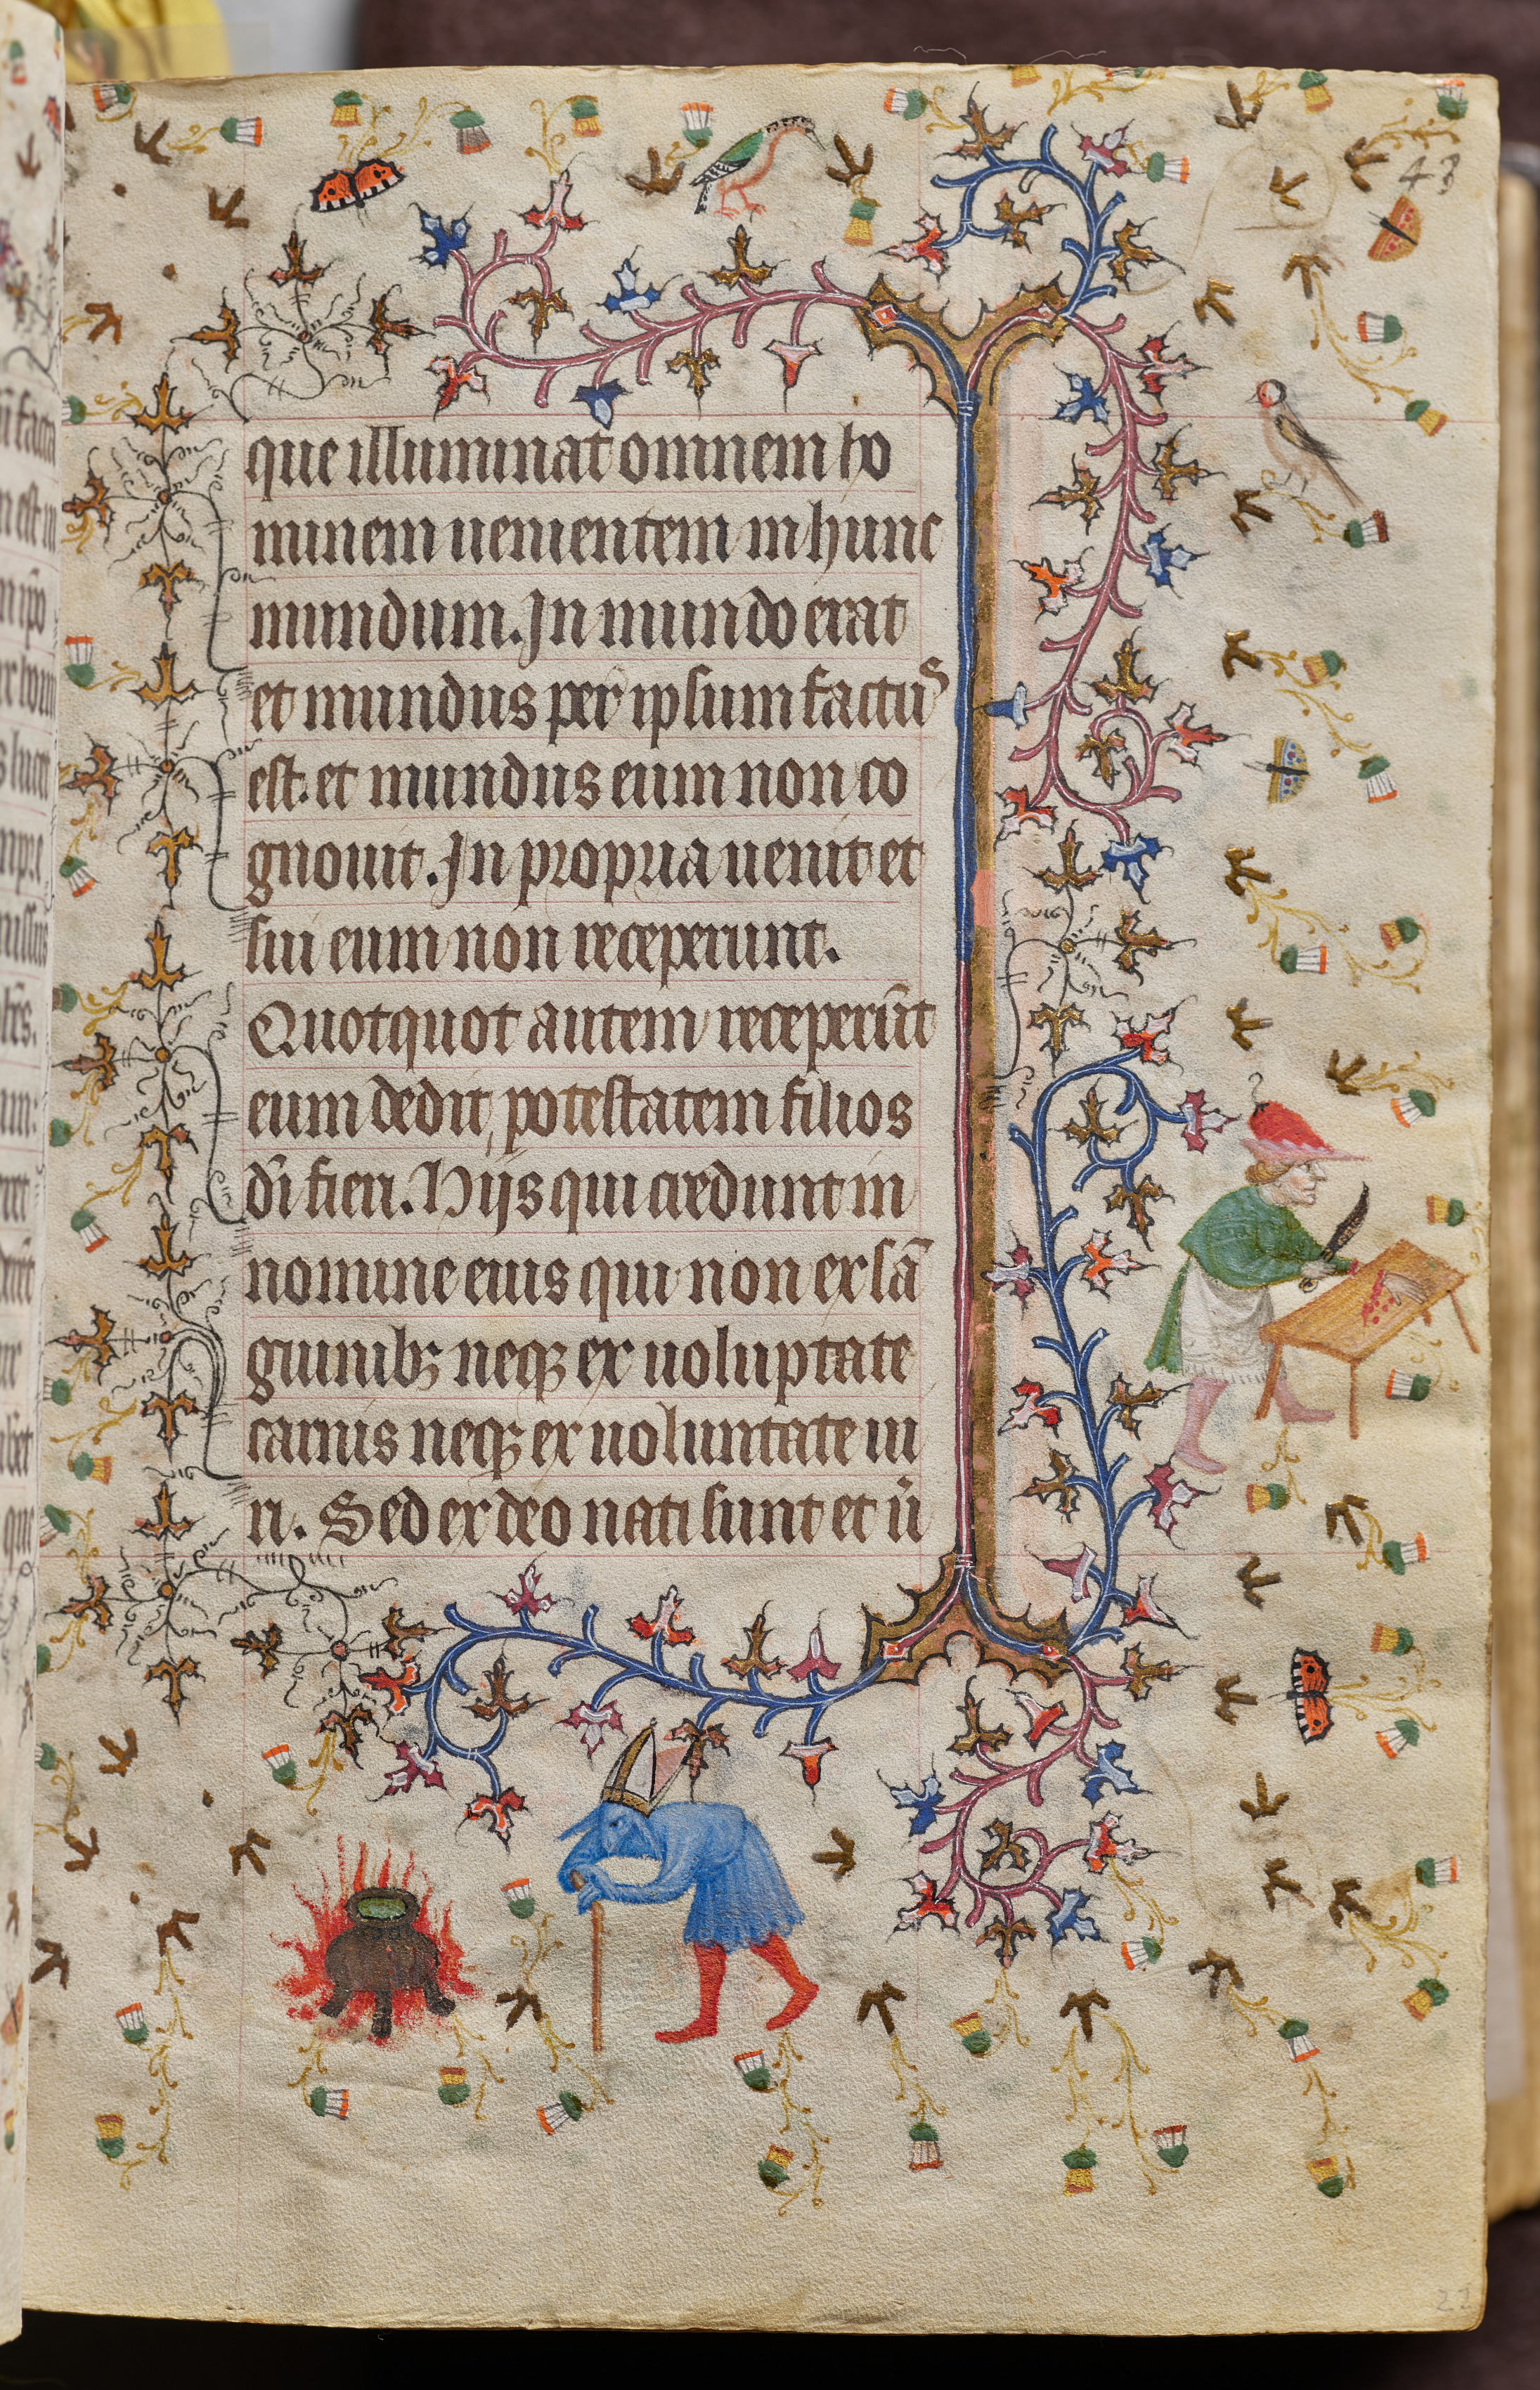 43
que illuminat omnem ho
minem uenientem in hunc
mundum. In mundo erat
et mundus per ipsum factus
est. et mundus eum non co
gnouit. In propria uenit et
sui eum non receperunt.
Quotquot autem receperūt
eum dedit potestatem filios
dī fieri. Hijs qui credunt in
nomine eius qui non ex sā
guinibꝫ neqꝫ ex uoluptate
carnis neqꝫ ex uoluntate ui
ri. Sed ex deo nati sunt et ū
22